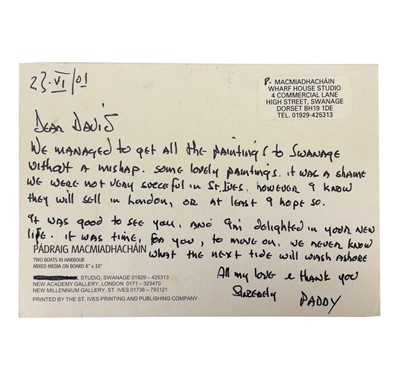 23.VI/01
P. MACMIADHACHÁIN
WHARF HOUSE STUDIO
4 COMMERCIAL LANE
HIGH STREET, SWANAGE
DORSET BH19 1DE
TEL. 01929-425313
DEAR DAVID
WE MANAGED TO GET ALL THE PAINTINGS TO SWANAGE
WITHOUT A MISHAP. SOME LOVELY PAINTINGS. IT WAS A SHAME
WE WERE NOT VERY SUCCEFUL IN ST. IVES. HOWEVER I KNOW
THEY WILL SELL IN LONDON, OR AT LEAST I HOPE SO.
IT WAS GOOD TO SEE YOU, AND I'M DELIGHTED IN YOUR NEW
LIFE. IT WAS TIME, FOR YOU, TO MOVE ON. WE NEVER KNOW
WHAT THE NEXT TIDE WILL WASH ASHORE
PÁDRAIG MACMIADHACHÁIN
TWO BOATS IN HARBOUR
MIXED MEDIA ON BOARD 8" x 10"
STUDIO, SWANAGE 01929 - 425313
NEW ACADEMY GALLERY, LONDON 0171 - 323470
NEW MILLENNIUM GALLERY, ST. IVES 01736 - 793121
PRINTED BY THE ST. IVES PRINTING AND PUBLISHING COMPANY
All my love & thank you
Sincerely PADDY